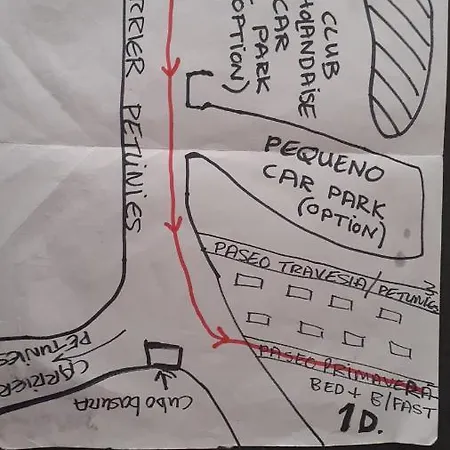 CLUB
HOLANDAISE
CAR
PARK
(OPTION)
RRIER PETUNIES
PEQUENO
CAR PARK
(OPTION)
PASEO TRAVESIA/PETUNIES
PASEO PRIMAVERA
BED + B/FAST
1D.
CARRIER
PETUNIES
Cubo basura